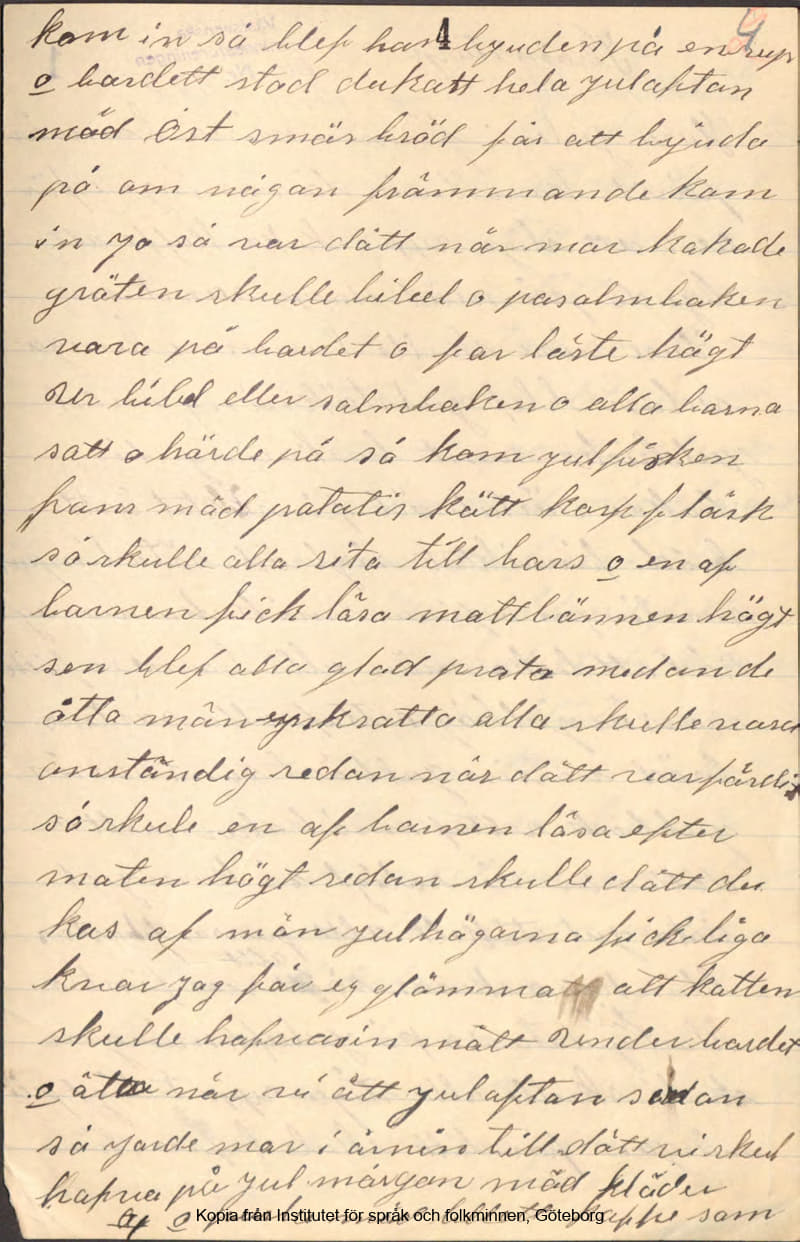 4 4
kom in så blef han bjuden på en sup
o bordett stod dukatt hela julaftan
mäd Ost smör bröd får att bjuda
på om någon främmande kom
in ja så var dätt när mor kokade
gröten skulle bibel o pasalmboken
vara på bordet o far läste högt
Ur bibel eller salmboken o alla barna
satt o hörde på så kom julfisken
fram mäd potatis kött korf fläsk
så skulle alla sita till bors o en af
barnen fick läsa mattbönnen högt
sen blef alla glad prata medan de
åtta män skratta alla skulle vara
anständig sedan när dätt var färdi
så skule en af barnen läsa efter
maten högt sedan skulle dätt du
kas af män julhögarna fick liga
kvar jag får ej glömma att katten
skulle hafva sin mått Under bordet
o ätta når vi ått julaftan sedan
så jorde mor i årnin till dätt vi skul
hafva på jul morgon mäd kläder
Kopia från Institutet för språk och folkminnen, Göteborg
som